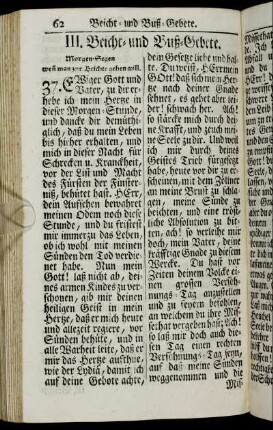 62 Beicht- und Buß-Gebete.
III. Beicht- und Buß-Gebete.
Morgen-Segen
weñ man zur Beichte gehen will.
37. EWiger Gott und
Vater, zu dir er-
hebe ich mein Hertze in
dieser Morgen-Stunde,
und dancke dir demüthi-
glich, daß du mein Leben
bis hieher erhalten, und
mich in dieser Nacht für
Schrecken u. Kranckheit,
vor der List und Macht
des Fürsten der Finster-
niß, behütet hast. HErr,
dein Aufsehen bewahret
meinen Odem noch diese
Stunde, und du fristest
mir immer zu das Leben
ob ich wohl mit meinen
Sünden den Tod verdie-
net habe. Nun mein
Gott! laß nicht ab, dei-
nes armen Kindes zu ver-
schonen, gib mir deinen
heiligen Geist in mein
Hertze, daß er mich heute
und allezeit regiere, vor
Sünden behüte, und in
alle Warheit leite, daß er
mir das Hertze aufthue,
wie der Lydiä, damit ich
auf deine Gebote achte,
dein Gesetze liebe und hal-
te. Du weist, HErr mein
Gott! daß sich mein Hertze
nach deiner Gnade
sehnet, es gehet aber lei-
der! schwach her. Ach!
so stärcke mich durch dei-
ne Krafft, und zeuch mei-
ne Seele zu dir. Und weil
ich mir durch deines
Geistes Trieb fürgesetzt
habe, heute vor dir zu er-
scheinen, mit dem Zöllner
an meine Brust zu schla-
gen, meine Sünde zu
beichten, und eine tröst-
liche Absolution zu bit-
ten, ach! so verleihe mir
doch, mein Vater, deine
kräfftige Gnade zu diesem
Wercke. Du hast vor
Zeiten deinem Volcke ei-
nen grossen Versöh-
nungs-Tag anzustellen
und zu feyern befohlen,
an welchem du ihre Mis-
sethat vergeben hast; Ach!
so laß mir doch auch die-
sen Tag einen rechten
Versöhnungs-Tag seyn,
auf daß meine Sünden
weggenommen und die
Miß-